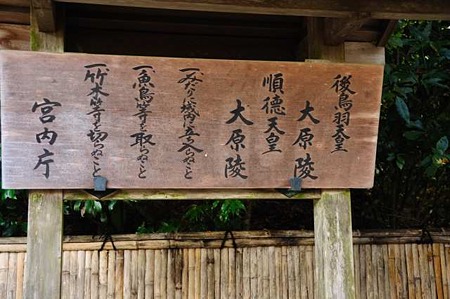 後鳥羽天皇
大原陵
順徳天皇
大原陵
一みだりに域内に立入らぬこと
一魚鳥等を取らぬこと
一竹木等を切らぬこと
宮内庁